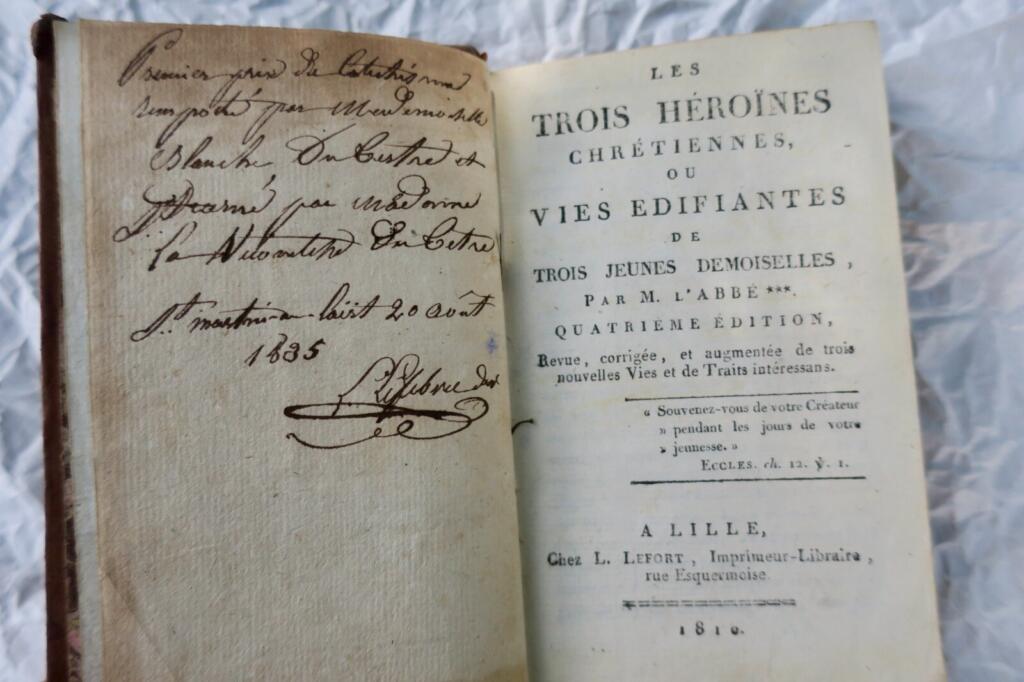 Premier prix de Catechisme
remporté par Mademoiselle
Blanche Du Cestre et
par Madame
La Du Cetre
St. martin-au-laërt 20 août
1835
Lefebvre
LES
TROIS HÉROÏNES
CHRÉTIENNES,
OU
VIES EDIFIANTES
DE
TROIS JEUNES DEMOISELLES,
PAR M. L'ABBÉ ***.
QUATRIÉME ÉDITION,
Revue, corrigée, et augmentée de trois
nouvelles Vies et de Traits intéressans.
« Souvenez-vous de votre Créateur
» pendant les jours de votre
» jeunesse. »
ECCLES. ch. 12. ℣. 1.
A LILLE,
Chez L. LEFORT, Imprimeur-Libraire,
rue Esquermoise.
1810.